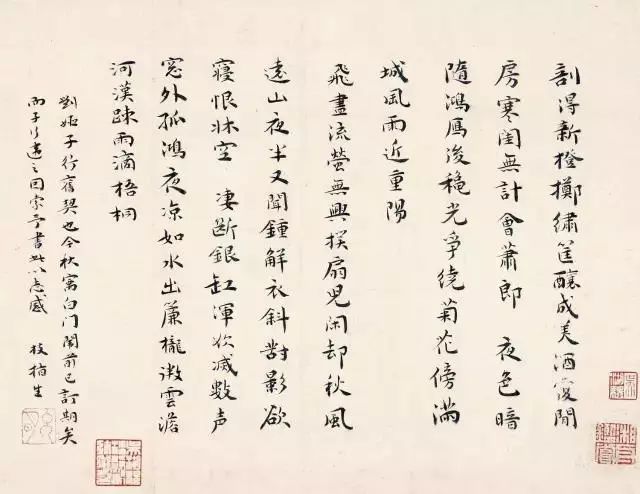 剖得新橙擲繡筐釀成美酒覆閒
房寒閨無計會蕭郎 夜色暗
隨鴻雁後穐光爭繞菊花傍滿
城風雨近重陽
飛盡流螢無興撲扇兒閑却秋風
遠山夜半又聞鍾解衣斜對影欲
寢恨牀空 凄斷銀缸渾欲減數声
窓外孤鴻夜凉如水出簾櫳微雲澹
河漢踈雨滴梧桐
劉姬子行舊契也今秋寓白门閱前已訂期矣
而子行遣之因索予書此以志感 枝指生